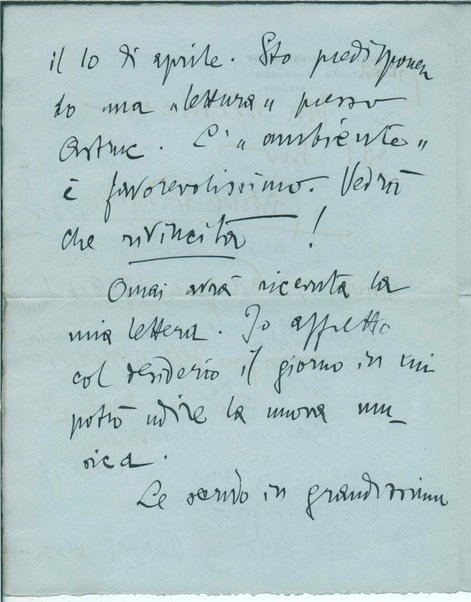 il 10 di aprile. Sto predisponen
do una «lettura» presso
Astruc. L'«ambiente»
è favorevolissimo. Vedrà
che rivincita!
Omai avrà ricevuta la
mia lettera. Io affretto
col desiderio il giorno in cui
potrò udire la nuova mu-
sica.
Le scrivo in grandissima